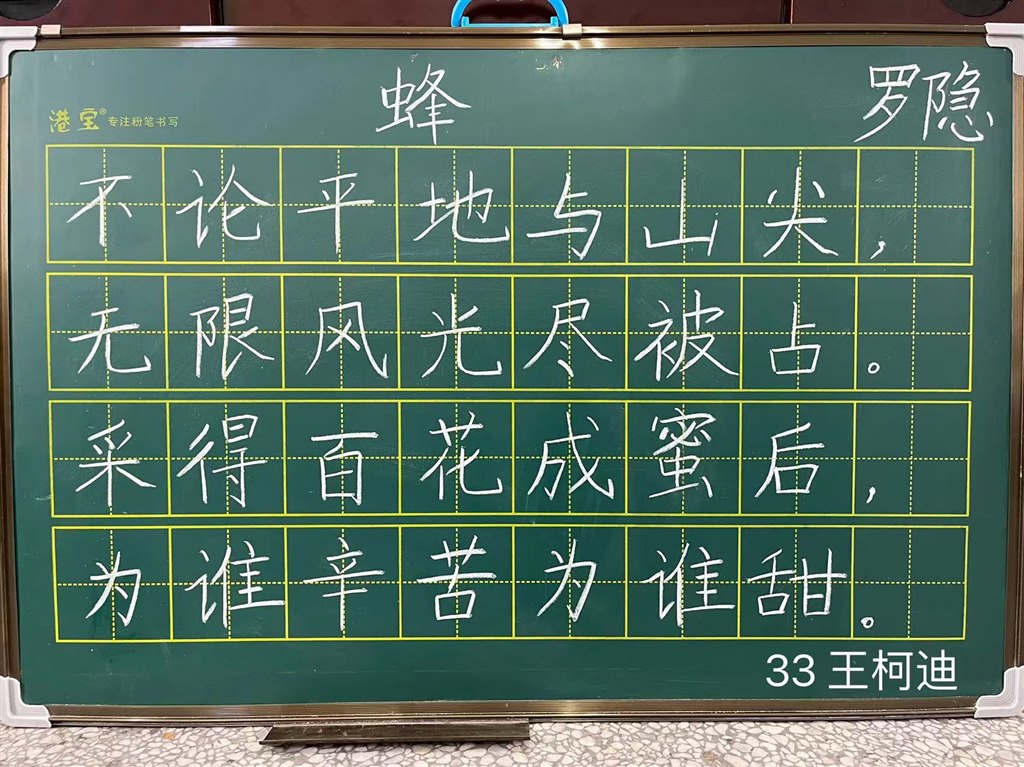 蜂 罗隐
港宝® 专注粉笔书写
不论平地与山尖，
无限风光尽被占。
采得百花成蜜后，
为谁辛苦为谁甜。
33 王柯迪